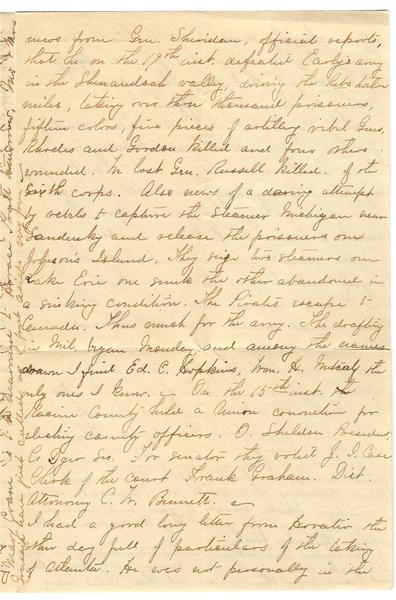 news from Gen. Sheridan, official reports,
that he on the 19th inst. defeated Early's army
in the Shenandoah valley, driving the rebs
miles, taking over three thousand prisoners,
fifteen colors, five pieces of artillery rebel Gens.
Rhodes and Gordon killed and four others
wounded. We lost Gen. Russell killed. of the
Sixth corps. Also news of a daring attempt
by rebels to capture the Steamer Michigan near
Sandusky and release the prisoners on
Johnson's Island. They seize two steamers on
Lake Erie one sunk the other abandoned in
a sinking condition. The Pirates escape to
Canada. Thus much for the army. The drafting
in Mil. began Monday and among the names
drawn I find Ed. C. Hopkins, Wm. H. Metcalf the
only ones I know. On the 15th inst. the
Racine County held a Union convention for
electing county officers. O. Sheldon President
C. Dyer Sec. For senator they voted J. I. Case
Clerk of the court Frank Graham. Dist.
Attorney C. W. Bennett.
I had a good long letter from Horatio the
other day full of particulars of the taking
of Atlanta. He was not personally in the